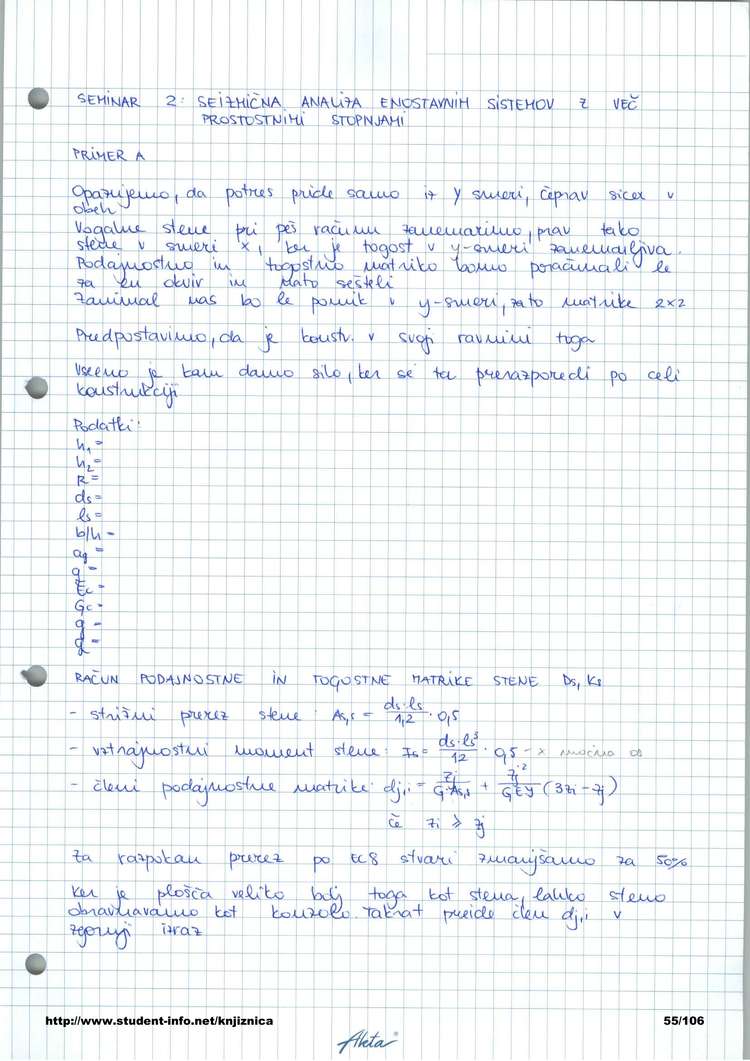 SEMINAR 2: SEIZMIČNA ANALIZA ENOSTAVNIH SISTEMOV Z VEČ
PROSTOSTNIMI STOPNJAMI
PRIMER A
Opazujemo, da potres pride samo iz y smeri, čeprav sicer v
obeh
Vogalne stene pri peš računu zanemarimo, prav tako
stene v smeri x, ker je togost v y-smeri zanemarljiva.
Podajnostno in togostno matriko bomo poračunali le
za en okvir in nato sešteli
Zanimal nas bo le pomik v y-smeri, zato matrike 2x2
Predpostavimo, da je konstr. v svoji ravnini toga
Vseeno je kam damo silo, ker se ta prerazporedi po celi
konstrukciji
Podatki:
h₁ =
h₂ =
R =
ds =
ls =
b/h =
ag =
q =
Ec =
Gc =
g =
q =
RAČUN PODAJNOSTNE IN TOGOSTNE MATRIKE STENE Ds, Ks
- strižni prerez stene: As,s = ds·ls / 1,2 · 0,5
- vztrajnostni moment stene: Is = ds·ls³ / 12 · 0,5 → x močna os
- členi podajnostne matrike: dj,i = zj / G·As,s + zj² / 6EI (3zi - zj)
če zi ≥ zj
Za razpokan prerez po EC8 stvari zmanjšamo za 50%
Ker je plošča veliko bolj toga kot stena, lahko steno
obravnavamo kot konzolo. Takrat preide člen dj,i v
zgornji izraz
http://www.student-info.net/knjiznica
55/106
Aleta